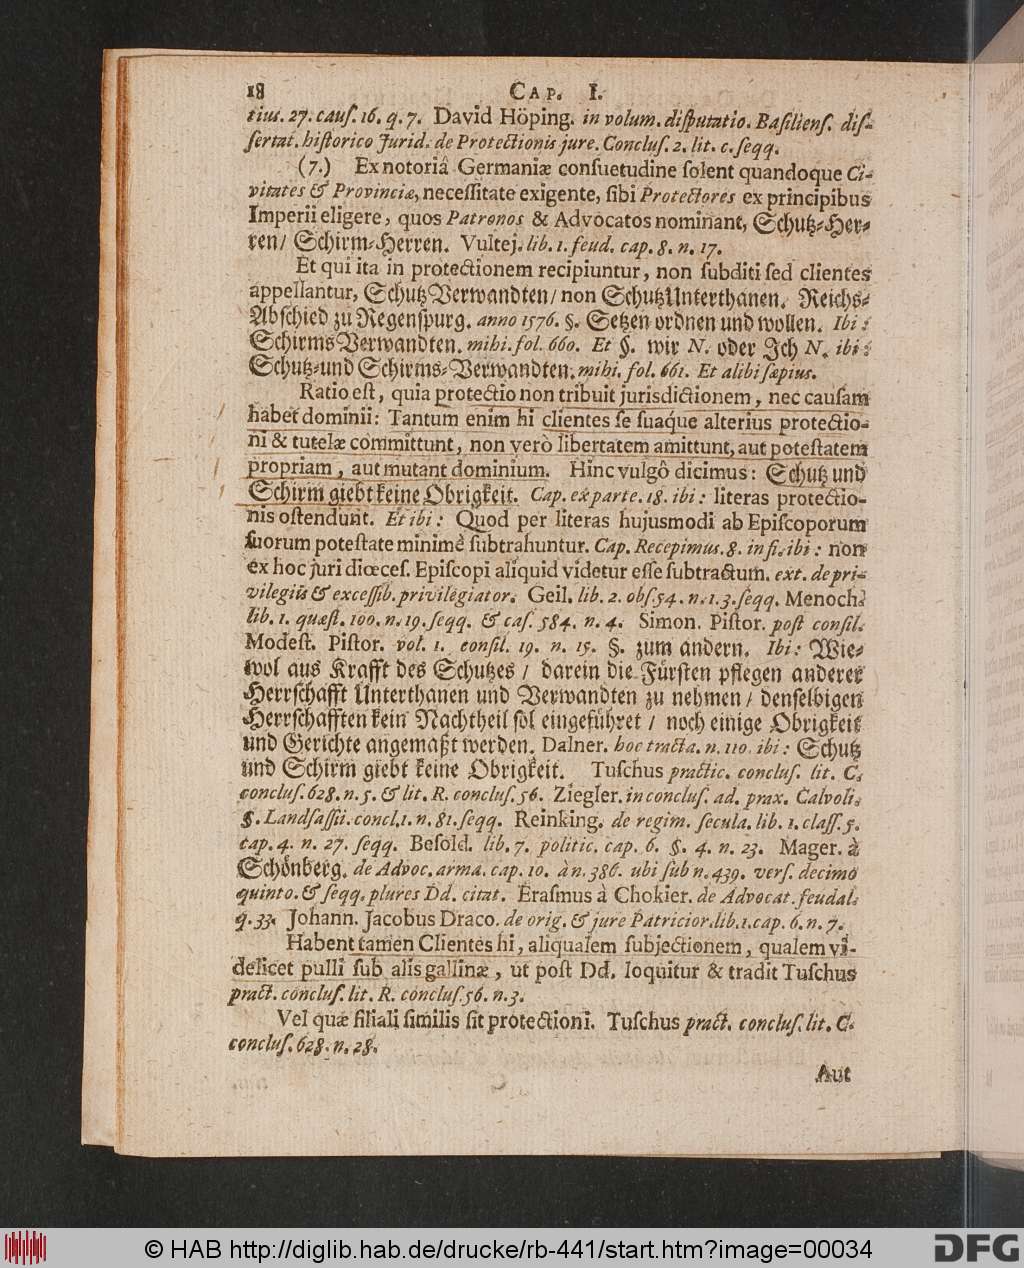 18 CAP. I.
tius. 27. cauſ. 16. q. 7. David Höping. in volum. diſputatio. Baſilienſ. diſ-
ſertat. hiſtorico Jurid. de Protectionis jure. Concluſ. 2. lit. c. ſeqq.
(7.) Ex notoriâ Germaniæ conſuetudine ſolent quandoque Ci-
vitates & Provinciæ, neceſſitate exigente, ſibi Protectores ex principibus
Imperii eligere, quos Patronos & Advocatos nominant, Schutz-Her-
ren/ Schirm-Herren. Vultej. lib. 1. feud. cap. 8. n. 17.
Et qui ita in protectionem recipiuntur, non ſubditi ſed clientes
appellantur, Schutz Verwandten/ non SchutzUnterthanen. Reichs-
Abſchied zu Regenſpurg. anno 1576. §. Setzen ordnen und wollen. Ibi:
Schirms Verwandten. mihi. fol. 660. Et §. wir N. oder Jch N. ibi:
Schutz-und Schirms-Verwandten. mihi. fol. 661. Et alibi ſæpius.
Ratio eſt, quia protectio non tribuit jurisdictionem, nec cauſam
habet dominii: Tantum enim hi clientes ſe ſuaque alterius protectio-
ni & tutelæ committunt, non verò libertatem amittunt, aut poteſtatem
propriam, aut mutant dominium. Hinc vulgò dicimus: Schutz und
Schirm giebt keine Obrigkeit. Cap. ex parte. 18. ibi: literas protectio-
nis oſtendunt. Et ibi: Quod per literas hujusmodi ab Epiſcoporum
ſuorum poteſtate minimè ſubtrahuntur. Cap. Recepimus. 8. in fi. ibi: non
ex hoc juri diœceſ. Epiſcopi aliquid videtur eſſe ſubtractum. ext. de pri-
vilegiis & exceſſib. privilegiator. Geil. lib. 2. obſ. 54. n. 1. 3. ſeqq. Menoch.
lib. 1. quæſt. 100. n. 19. ſeqq. & caſ. 584. n. 4. Simon. Piſtor. poſt conſil.
Modeſt. Piſtor. vol. 1. conſil. 19. n. 15. §. zum andern. Ibi: Wie-
wol aus Krafft des Schutzes / darein die Fürſten pflegen anderer
Herrſchafft Unterthanen und Verwandten zu nehmen / denſelbigen
Herrſchafften kein Nachtheil ſol eingeführet / noch einige Obrigkeit
und Gerichte angemaßt werden. Dalner. hoc tracta. n. 110. ibi: Schutz
und Schirm giebt keine Obrigkeit. Tuſchus practic. concluſ. lit. C.
concluſ. 628. n. 5. & lit. R. concluſ. 56. Ziegler. in concluſ. ad. prax. Calvoli.
§. Landſaſſii. concl. 1. n. 81. ſeqq. Reinking. de regim. ſecula. lib. 1. claſſ. 5.
cap. 4. n. 27. ſeqq. Beſold. lib. 7. politic. cap. 6. §. 4. n. 23. Mager. à
Schönberg. de Advoc. arma. cap. 10. à n. 386. ubi ſub n. 439. verſ. decimo
quinto. & ſeqq. plures Dd. citat. Eraſmus à Chokier. de Advocat. feudal.
q. 33. Johann. Jacobus Draco. de orig. & jure Patricior. lib. 1. cap. 6. n. 7.
Habent tamen Clientes hi, aliqualem ſubjectionem, qualem vi-
delicet pulli ſub alis gallinæ, ut poſt Dd. loquitur & tradit Tuſchus
pract. concluſ. lit. R. concluſ. 56. n. 3.
Vel quæ filiali ſimilis ſit protectioni. Tuſchus pract. concluſ. lit. C.
concluſ. 628. n. 28.
Aut
© HAB http://diglib.hab.de/drucke/rb-441/start.htm?image=00034
DFG